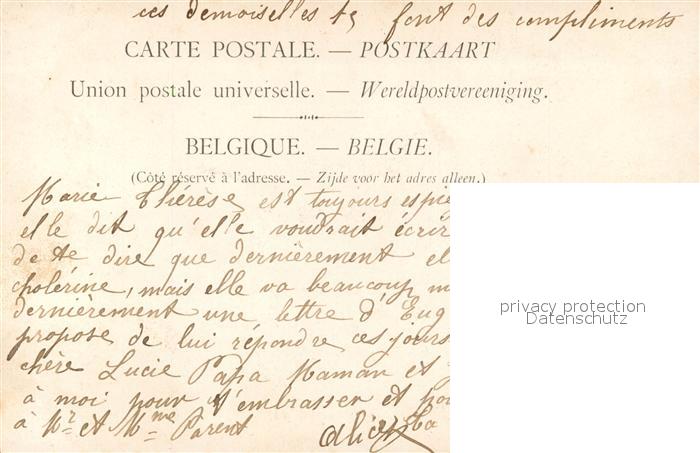 ces demoiselles te font des compliments
CARTE POSTALE. — POSTKAART
Union postale universelle. — Wereldpostvereeniging.
BELGIQUE. — BELGIE.
(Côté réservé à l'adresse. — Zijde voor het adres alleen.)
Marie Thérèse est toujours espiè
elle dit qu'elle voudrait écrir
de te dire que dernièrement el
cholérine, mais elle va beaucoup m
dernièrement une lettre d'Eug
propose de lui répondre ces jours
chère Lucie Papa Maman et
à moi pour t'embrasser et
à Mr et Mme Parent
privacy protection
Datenschutz